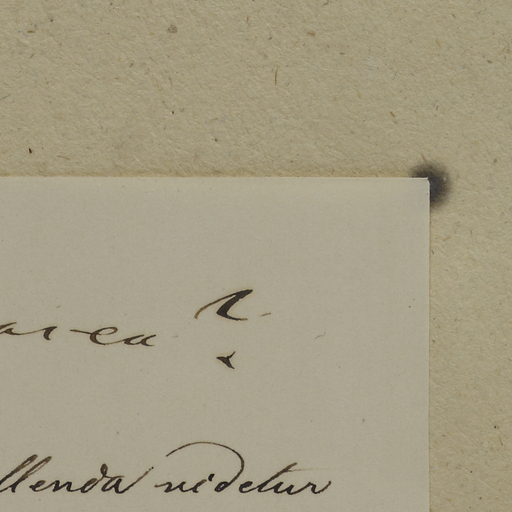 area ?
llenda videtur